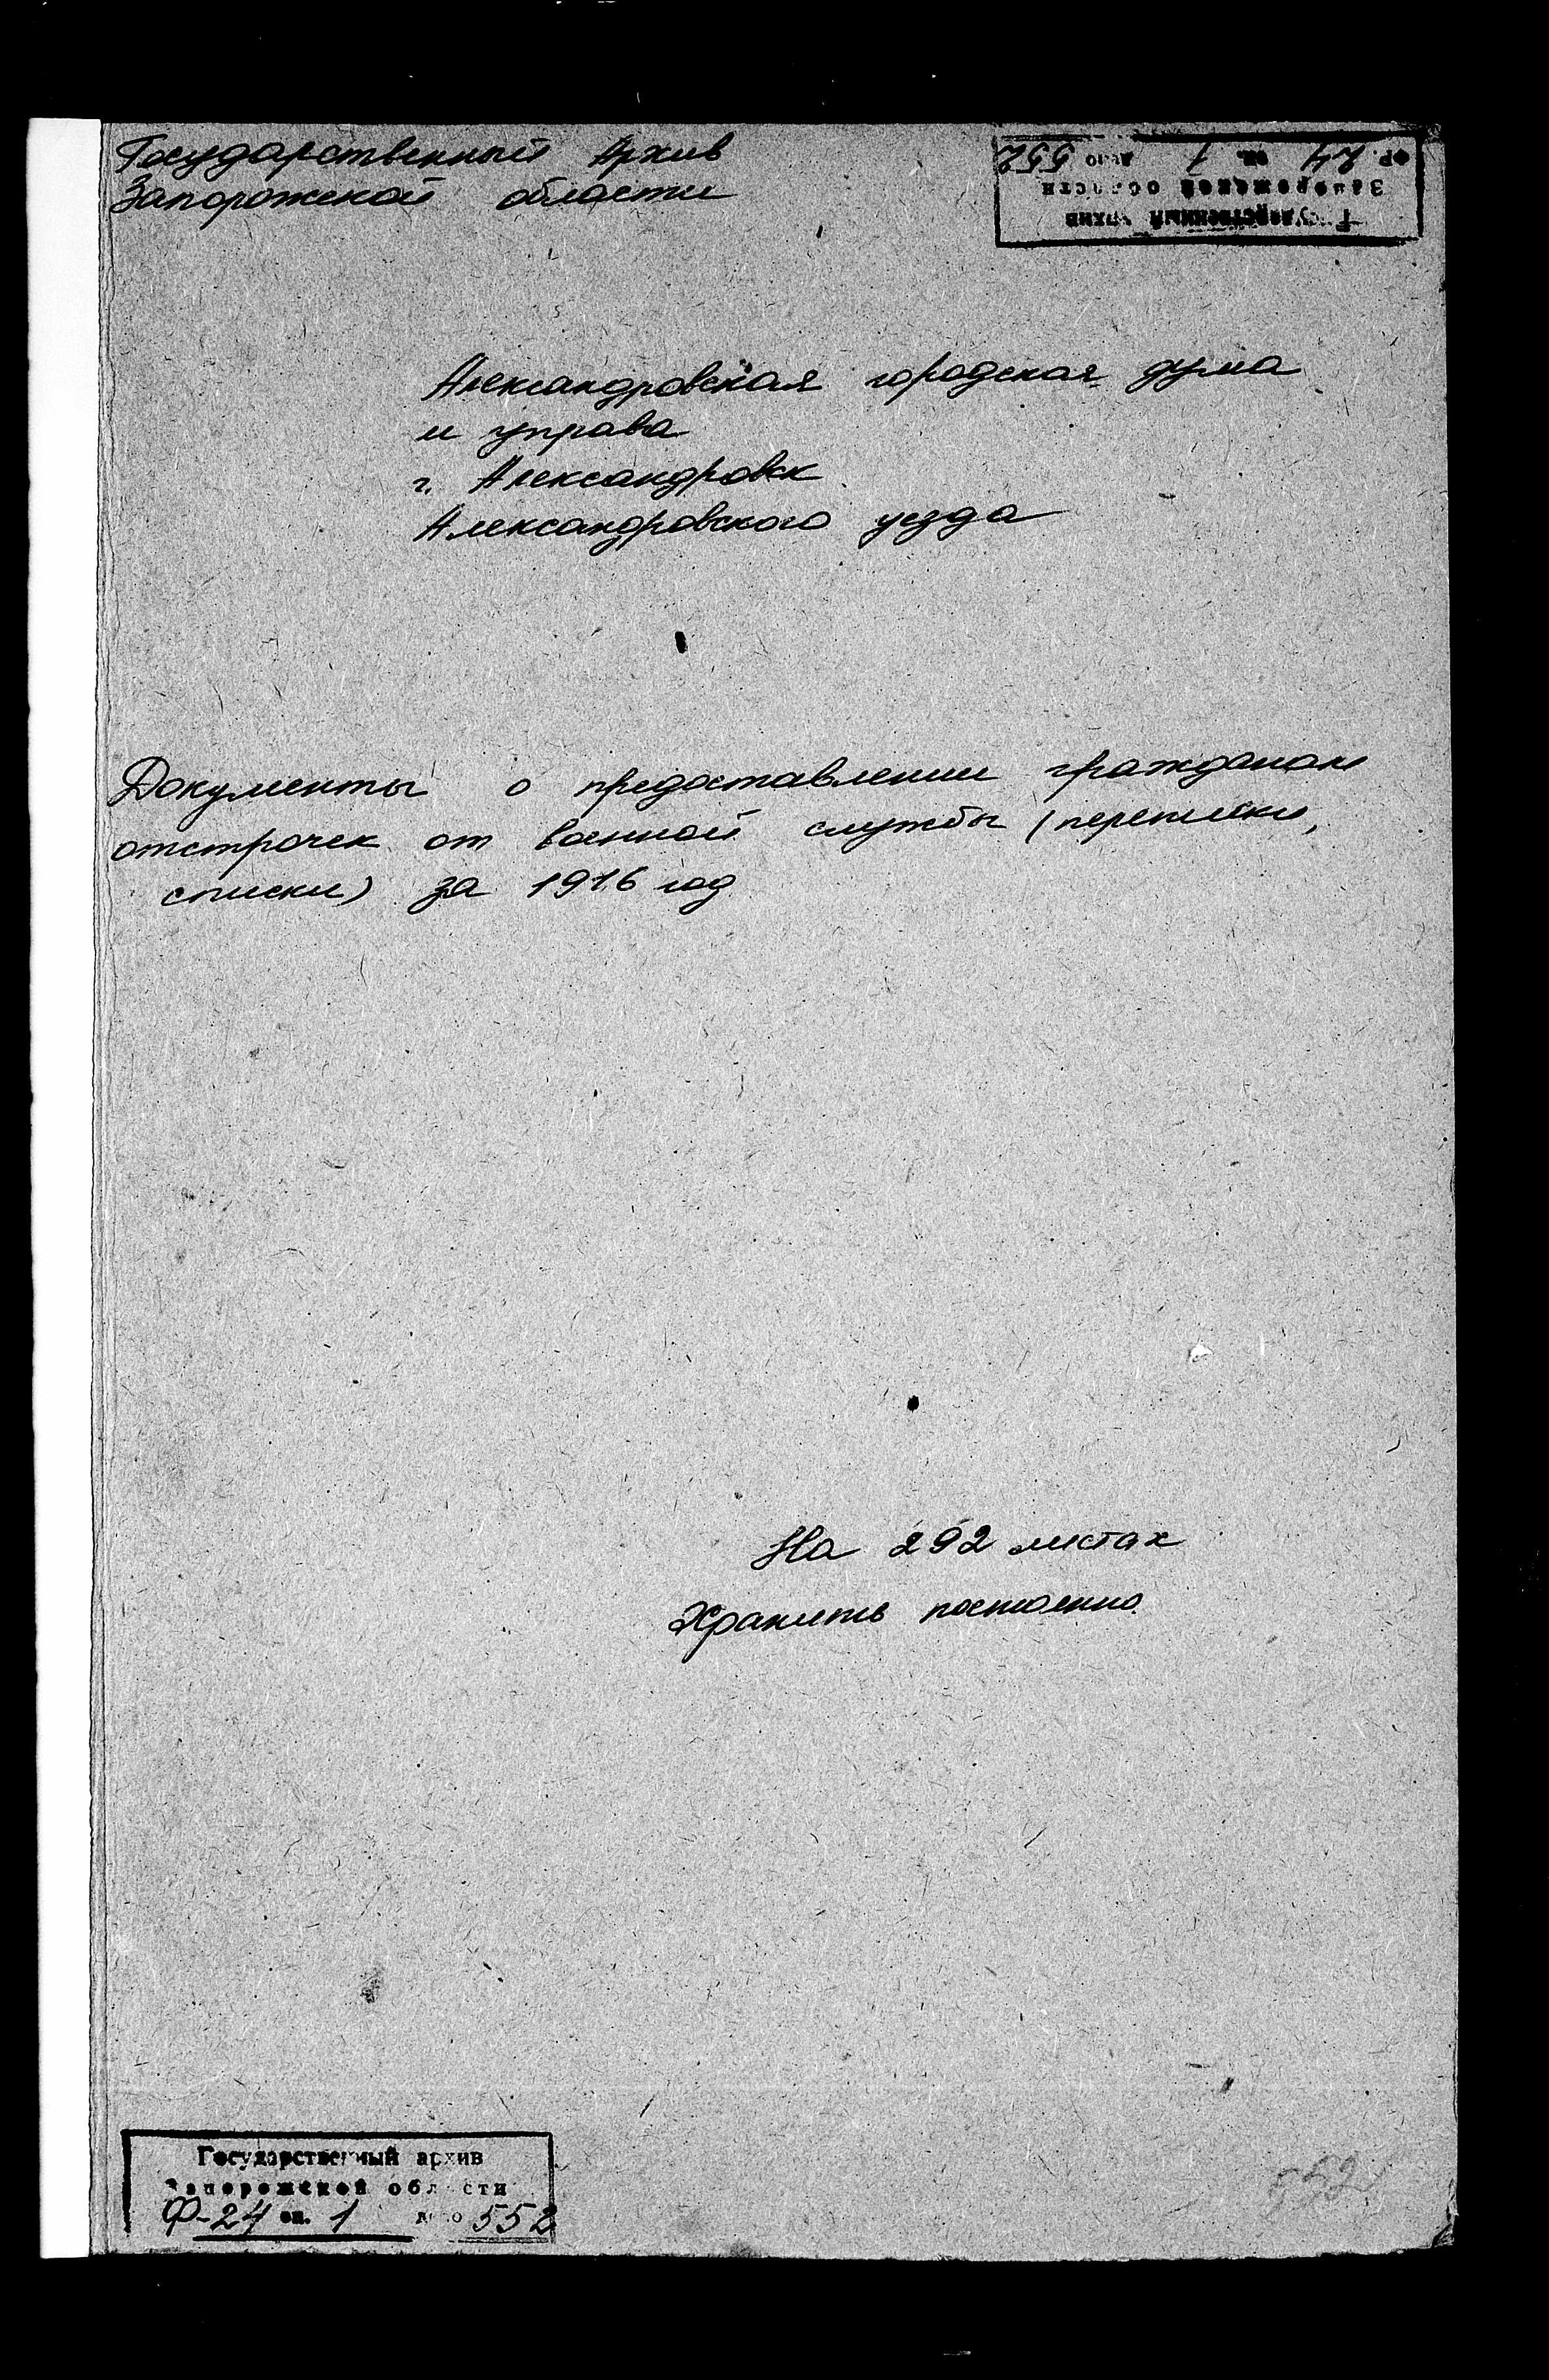 Государственный Архив
Запорожской области
Государственный архив
Запорожской области
ФР. 24 оп. 1 дело 552
Александровская городская дума
и управа
г. Александровск
Александровского уезда
Документы о предоставлении гражданам
отстрочек от военной службы (переписки,
списки) за 1916 год
На 292 листах
Хранить постоянно.
Государственный архив
Запорожской области
Ф-24 оп. 1 дело 552
552